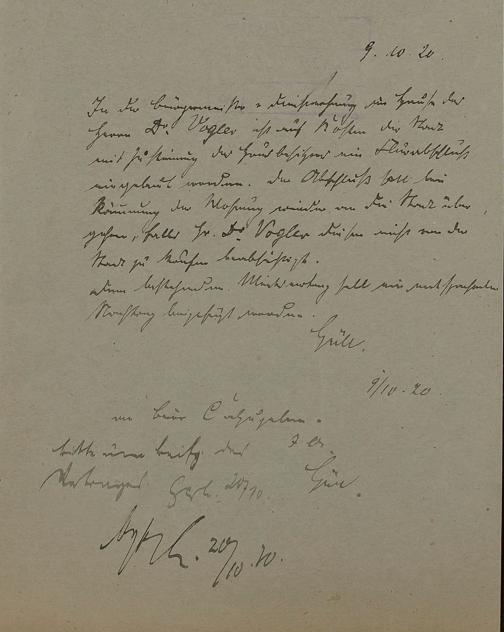 9. 10. 20.
In der Bürgermeister-Dienstwohnung im Hause des
Herrn Dr. Vogler ist auf Kosten der Stadt
mit Zustimmung des Hausbesitzers ein Flurabschluß
eingebaut worden. Der Abschluß soll bei
Räumung der Wohnung wieder an die Stadt über
gehen, falls Hr. Dr. Vogler diesen nicht von der
Stadt zu kaufen beabsichtigt.
Dem bestehenden Mietvertrag soll ein entsprechender
Nachtrag beigefügt werden.
9/10. 20
an Büro C abzugeben.
bitte um beifg. des
Vertrages 20/10.
20/10. 20.